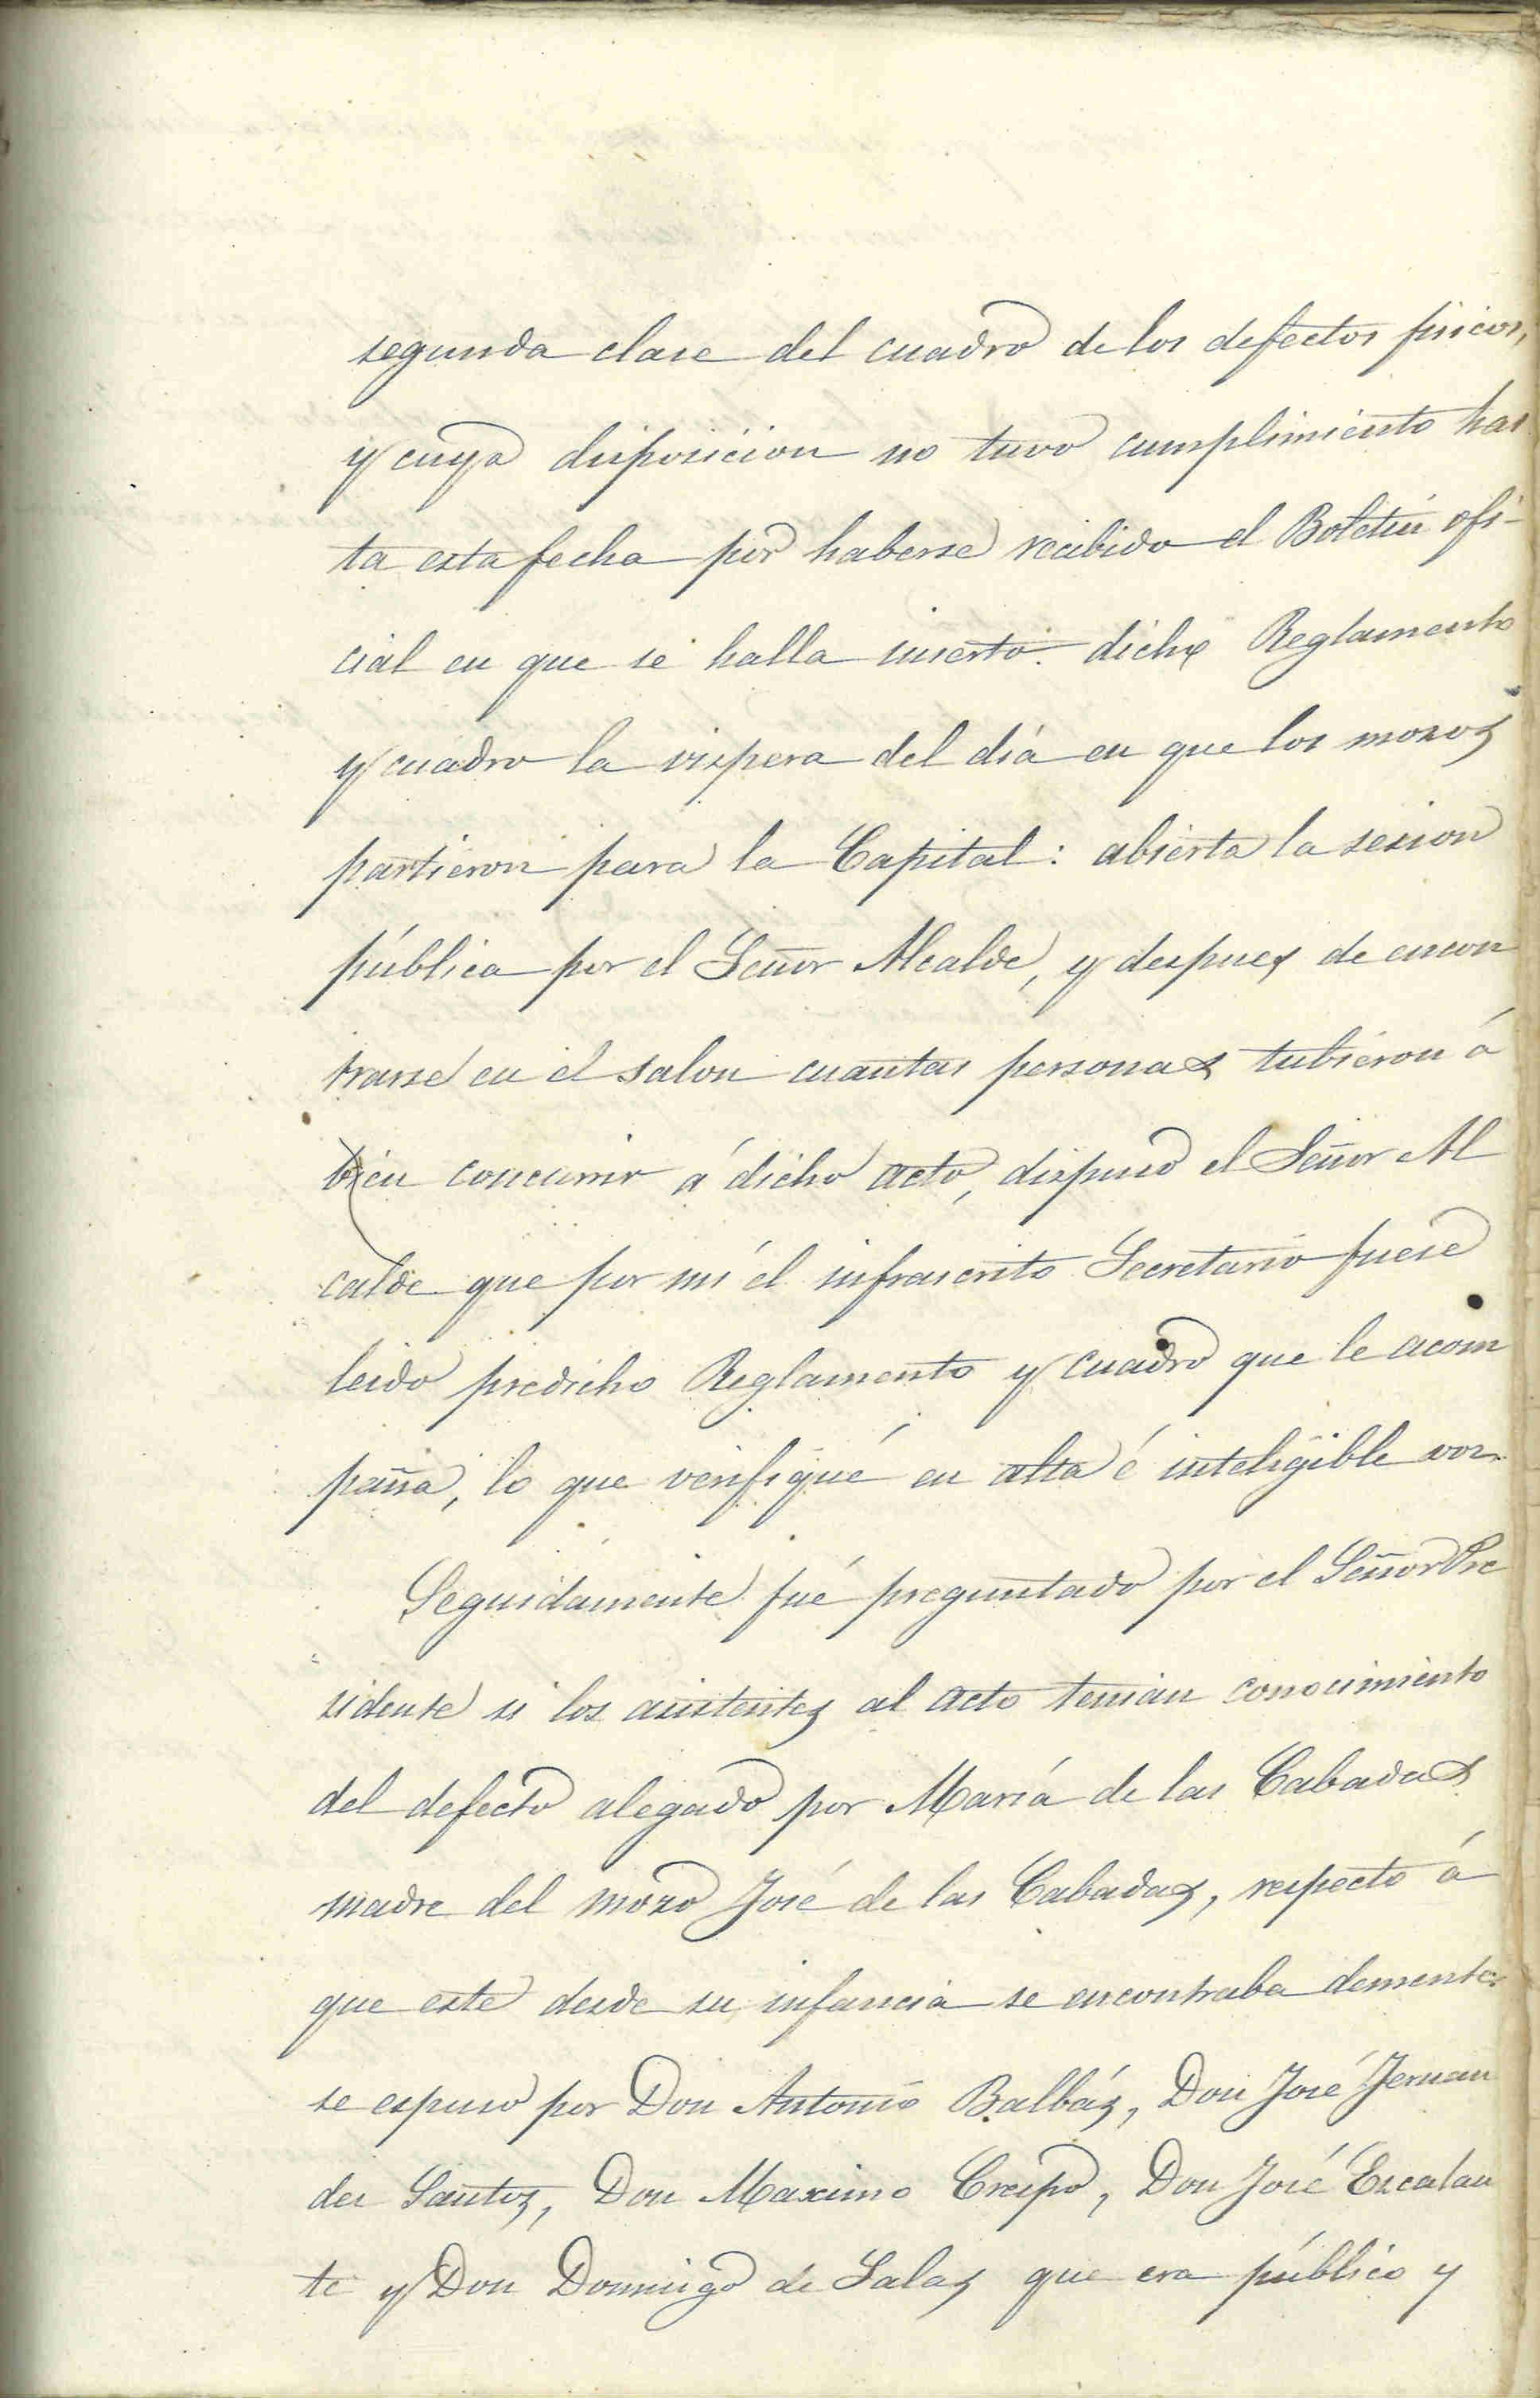 segunda clase del cuadro de los defectos fisicos,
y cuya disposicion no tuvo cumplimiento has
ta esta fecha por haberse recibido el Boletin ofi-
cial en que se halla inserto dicho Reglamento
y cuadro la vispera del dia en que los mozos
partieron para la Capital: abierta la sesion
pública por el Señor Alcalde, y despues de encon
trarse en el salon cuantas personas tubieron á
bien concurrir á dicho acto, dispuso el Señor Al
calde que por mi el infrascrito Secretario fuese
leido predicho Reglamento y cuadro que le acom
paña, lo que verifiqué en alta é inteligible voz.
Seguidamente fué preguntado por el Señor Pre
sidente si los asistentes al acto tenian conocimiento
del defecto alegado por María de las Cabadas
madre del mozo José de las Cabadas, respecto á
que este desde su infancia se encontraba demente.
se espuso por Don Antonio Balbás, Don José Fernan
des Santos, Don Maximo Crespo, Don José Escalan
te y Don Domingo de Salas que era público y